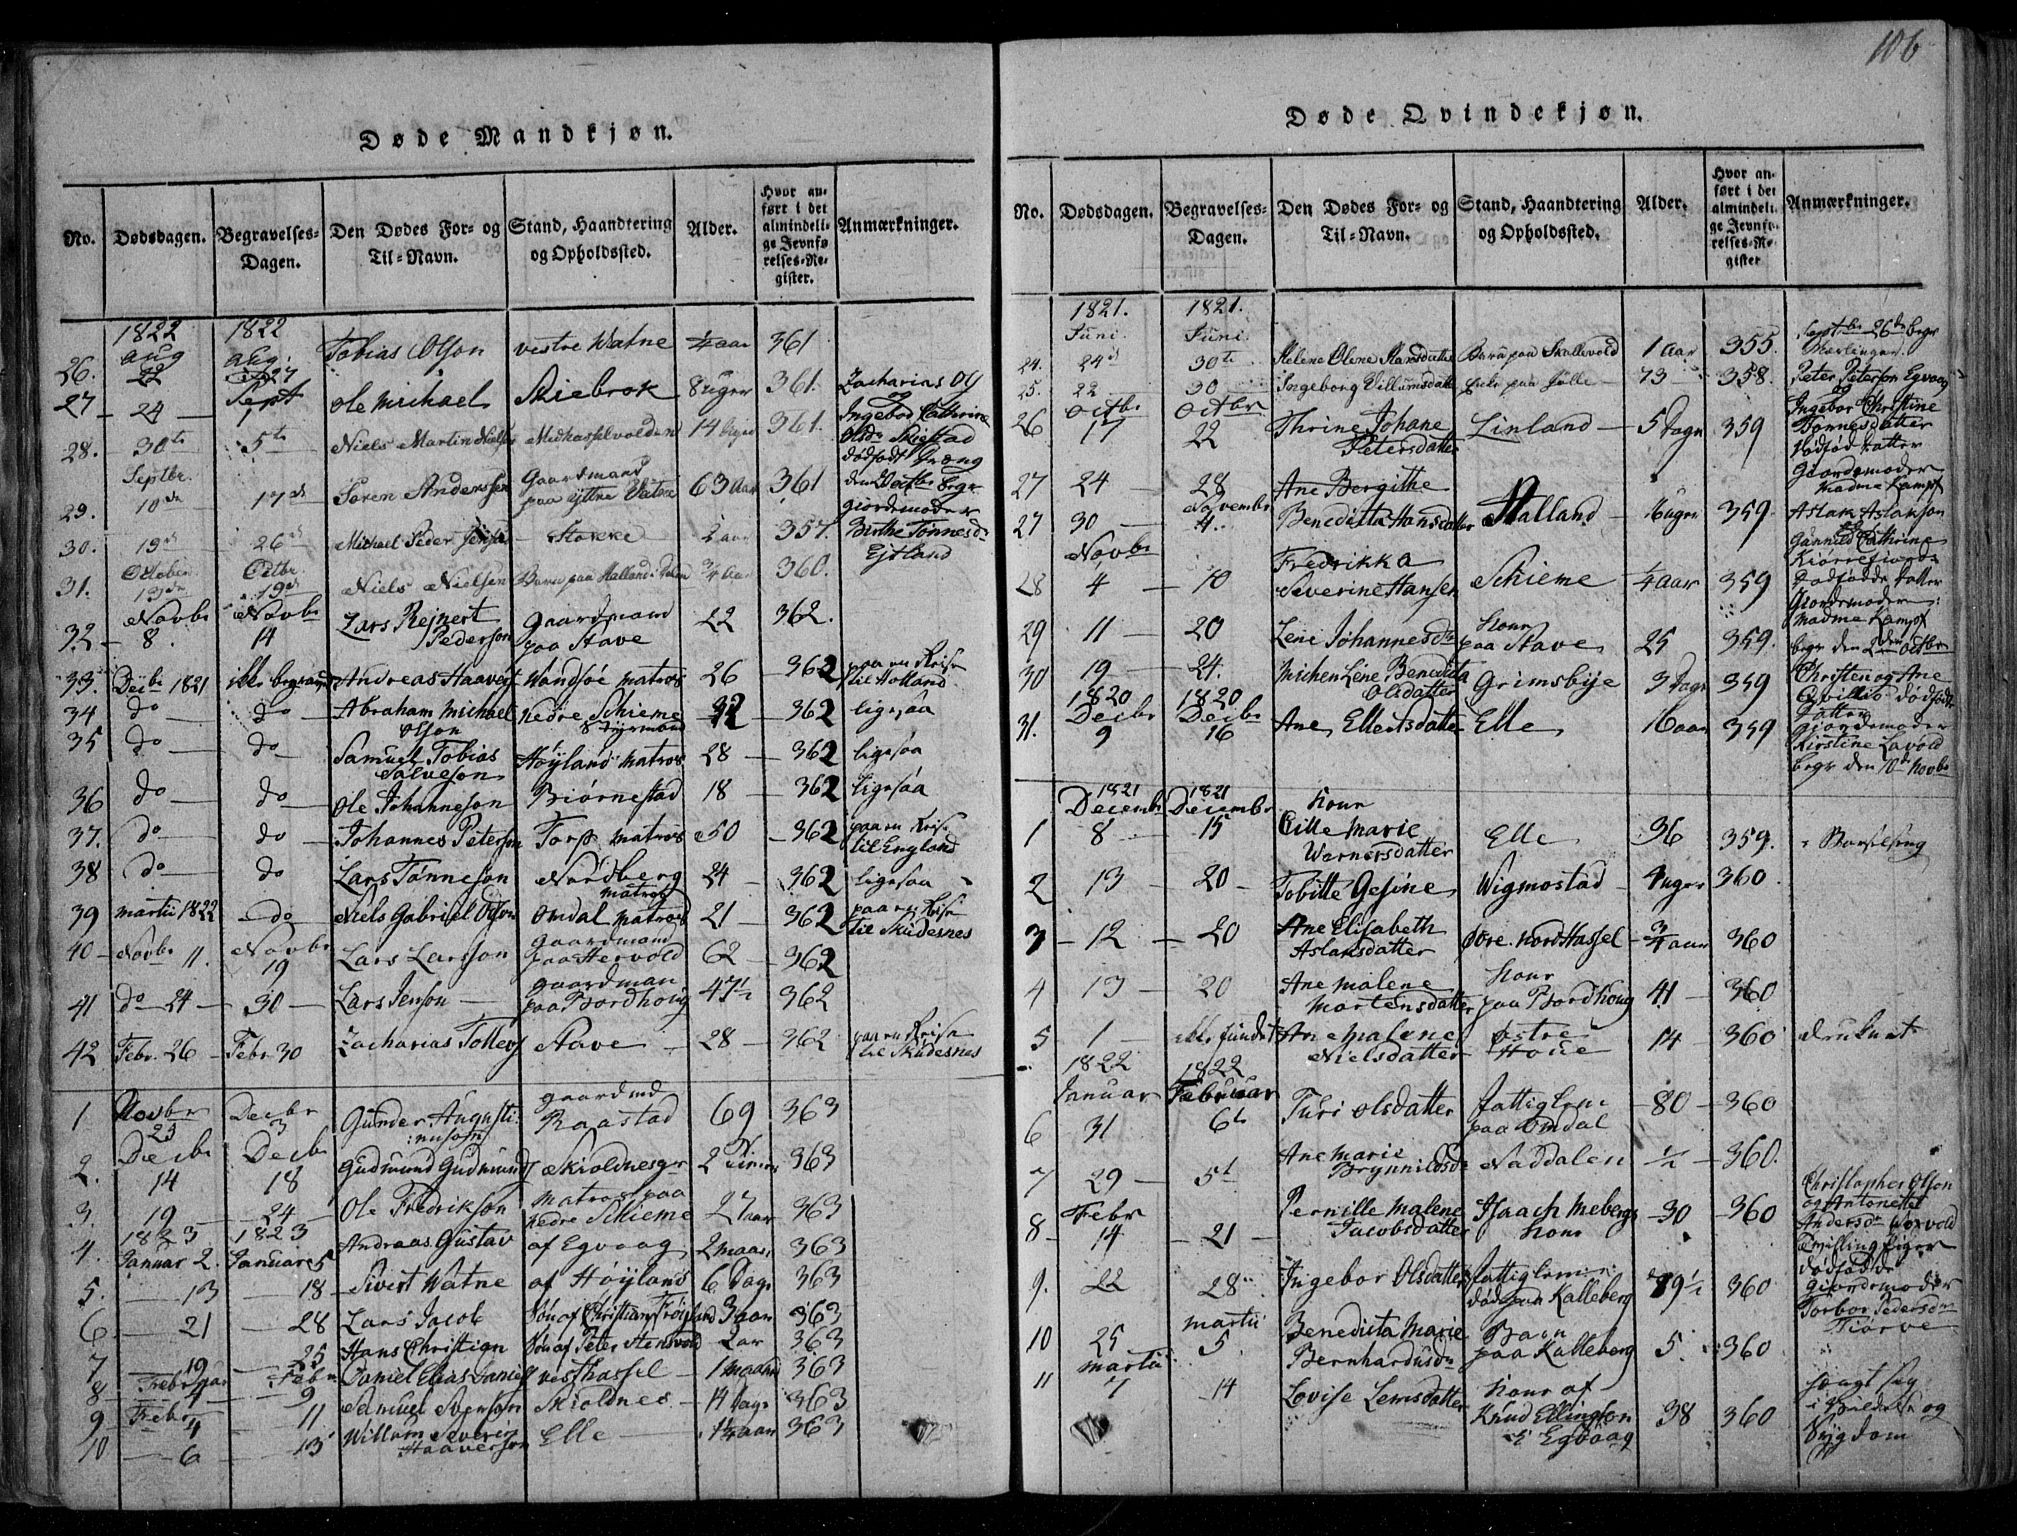 106
Døde Mandkjøn.
No. Dødsdagen. Begravelses-Dagen. Den Dødes For- og Til-Navn. Stand, Haandtering og Opholdssted. Alder. Hvor anført i det almindelige Jevnførelses-Register. Anmærkninger.
1822 1822
26. aug 22 aug. 27 Tobias Olson vestre Watne ¼ aar 361
27 - 24 - Sept 1 Ole Michael Skiebrok 8 uger 361. Zacharias Ols
28. 30te 5te Niels Martin Niels Midhasselvolden 14 361. og Ingebor Cathrine
Olsdr Skiestad
dødfødt
Septbr.
29. 10de 17de Søren Anderssen Gaardmand paa yttre Watne 63 aar 361
giordemoder
30. 19de 26de Michael Peder Stokke 2 aar 357. Birthe Tønnesdr
Ejtland
31. October 13de Octbr 19de Niels Nielsen Barn paa Halland ¾ aar 360.
32 - Novbr 8. Novbr 14 Lars Rejnert Pederson gaardmand paa Stave 22 362.
33. Decbr 1821 ikke begraved Andreas Haavers Wandsøe matros 26 362 paa en Reise til Holland
34 do do Abraham Michael Olson nedre Schieme Styrmand 32 362 ligesaa
35 do do Samuel Tobias Salveson Høyland matros 28 - 362 ligesaa
36 do do Ole Johanneson Biørnestad 18 - 362 ligesaa
37. do do Johannes Peterson Torp matros 50 362 paa en Reise til England
38 do do Lars Tønneson Nordberg matros 24 - 362 ligesaa
39 martii 1822 do Niels Gabriel Olson Omdal matros 21 - 362 paa en Reise til Skudesnes
40 - Novbr 11. Novbr 19 Lars Larsson gaardmand paa Hervold 62 - 362
41 do 24 - 30 - Lars Jenson - gaardman paa Bordhoug 47½ 362
42 Febr. 26 - Febr 30 Zacharias Tollefs Stave - 28 - 362 paa en Reise til Skudesnes
1 Novbr 23 Decbr 3 Gunder Augustinuson gaardmd Raastad 69 363
2. Decbr 14 Decbr 18 Gudmund Gudmunds Skioldnes 2 Timer 363
3. 19 - 24 - Ole Fredrikson matros paa nedre Schieme 27 aar 363
1823 1823
4. Januar 2. Januar 5 Andraas Gustav af Egvaag 2 maan 363
5. - 13 - 18 Sivert Watne af Høyland 6 Dage 363
6 - 21 - 28 Lars Jacob Søn af Christian Frøyland 3 aar 363
7 - 19 - 25 Hans Christian Søn af Peter Stensvold 2 ar 363
8 - Februar 4 - Febr 9 Daniel Elias Daniels vesthassel - 1 maaned 363
9 - Febr 4 - 11 Samuel Svenson Skioldnes - 14 Dage 363
10 - 6 - 13 Willum Severin Haaverson Elle - 363
Døde Qvindekjøn.
No. Dødsdagen. Begravelses-Dagen. Den Dødes For- og Til-Navn. Stand, Haandtering og Opholdssted. Alder. Hvor anført i det almindelige Jevnførelses-Register Anmærkninger.
1821. 1821.
Juni. Juni.
24. 24de 30te Helene Olene Hansdatter Barn paa Skallevold 1 aar 355.
25. 22 - 30 Ingeborg Villumsdatter 73 - 358. Peter Peterson Egvaag
26 Octbr 17 Octbr 22 Thrine Johane Petersdatter Linland - 5 Dage 359 og Ingebor Christine
Tønnesdatter
dødfød datter
Giordemoder
Madme Kampf
27 24 28 Ane Bergithe
27 30 - November 4. Benedicta Hansdatter Halland - uger 359. Aslak Aslakson
og Gunnild Cathrine
28 Novbr 4 - 10 Fredrikka Severine Hansen Schieme ¼ aar 359 dødfødde datter
Giordemoder
madme Kampf
29 11 - 20 Lene Johannesdr Kone paa Stave 25 359. begr den Octbr
30 19 - 24. Michen Lene Benedicta Olsdatter Grimsbye 3 Dage 359 Christen og Ane
dødfødde
Datter
1820 1820
31. Decbr 9 Decbr 16 Ane Ellertsdatter Elle 16 aar 359 Giordemoder
Kirstine Lavold
begr den 10de Novbr
1821 1821
1 Decembr 8 - Decembr 15 Kone Cille Marie Wernersdatter Elle 36 359. i Barselseng
2 13 - 20 - Tobitte Gesine Wigmostad - uger 360
3 - 12 - 20 Ane Elisabeth Aslaksdatter Øvre Nordhassel - ¾ aar 360
4 13 - 20 Ane Malene Martensdatter Kone paa Bordhoug 41 - 360
5 1 - ikke fundet Ane Malene Nielsdatter østre Houe 14 - 360 druknet
1822 1822
6 Januar 31 Februar 6te Turi Olsdatter fattiglem paa Omdal - 80 - 360
7 29 - 5t Ane Marie Brynnildsdr Naddalen - ½ - 360.
8 - Febr 14 - 21 - Pernille Malene Jacobsdatter Isaach Mebergs Kone - 30 360 Christopher Olson
og Antonette
Andersdr Worvold
Tvilling Piger
dødfødde
9. 22 28 Ingebor Olsdatter fattiglem død paa Kalleberg 89½ 360 giordemoder
Torbor Pedersdr
Tiørve
10 25 martii 5. Benedicta Marie Bernhardusdr Barn paa Kalleberg 5. 360
11 martii 7 14 Lovise Lemsdatter Kone af Knud Ellingson i Egvaag 38 360 svagt seg
og
Sygdom